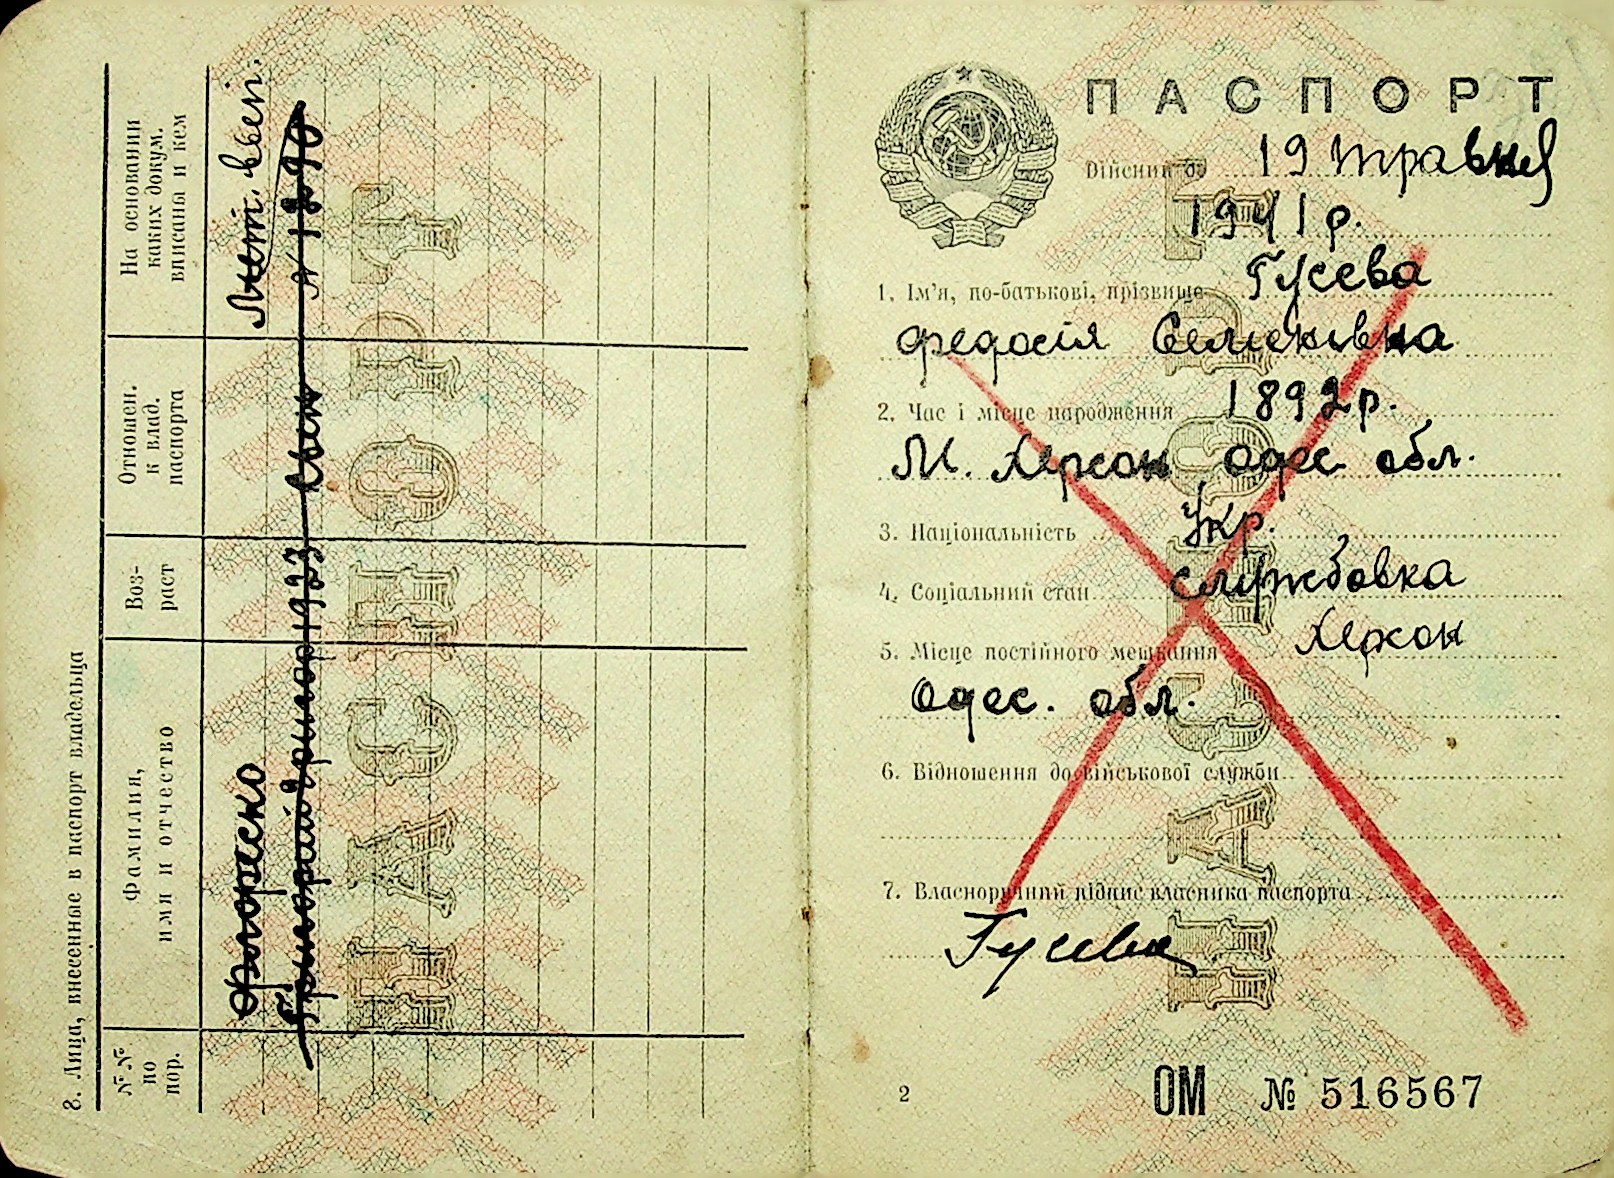 8. Лица, внесенные в паспорт владельца
№ №
по
пор.
Фамилия,
имя и отчество
Воз-
раст
Отношен.
к влад.
паспорта
На основании
каких докум.
вписаны и кем
Григорий 1923
№ 1290
ПАСПОРТ
ПАСПОРТ
Дійсний до 19 травня
1941 р.
1. Ім'я, по-батькові, прізвище Гусева
Федосія
2. Час і місце народження 1892 р.
М. Херсон Одес. обл.
3. Національність Укр.
4. Соціальний стан службовка
5. Місце постійного мешкання Херсон
Одес. обл.
6. Відношення до військової служби
7. Власноручний підпис власника паспорта
Гусева
ПАСПОРТ
2
ОМ № 516567